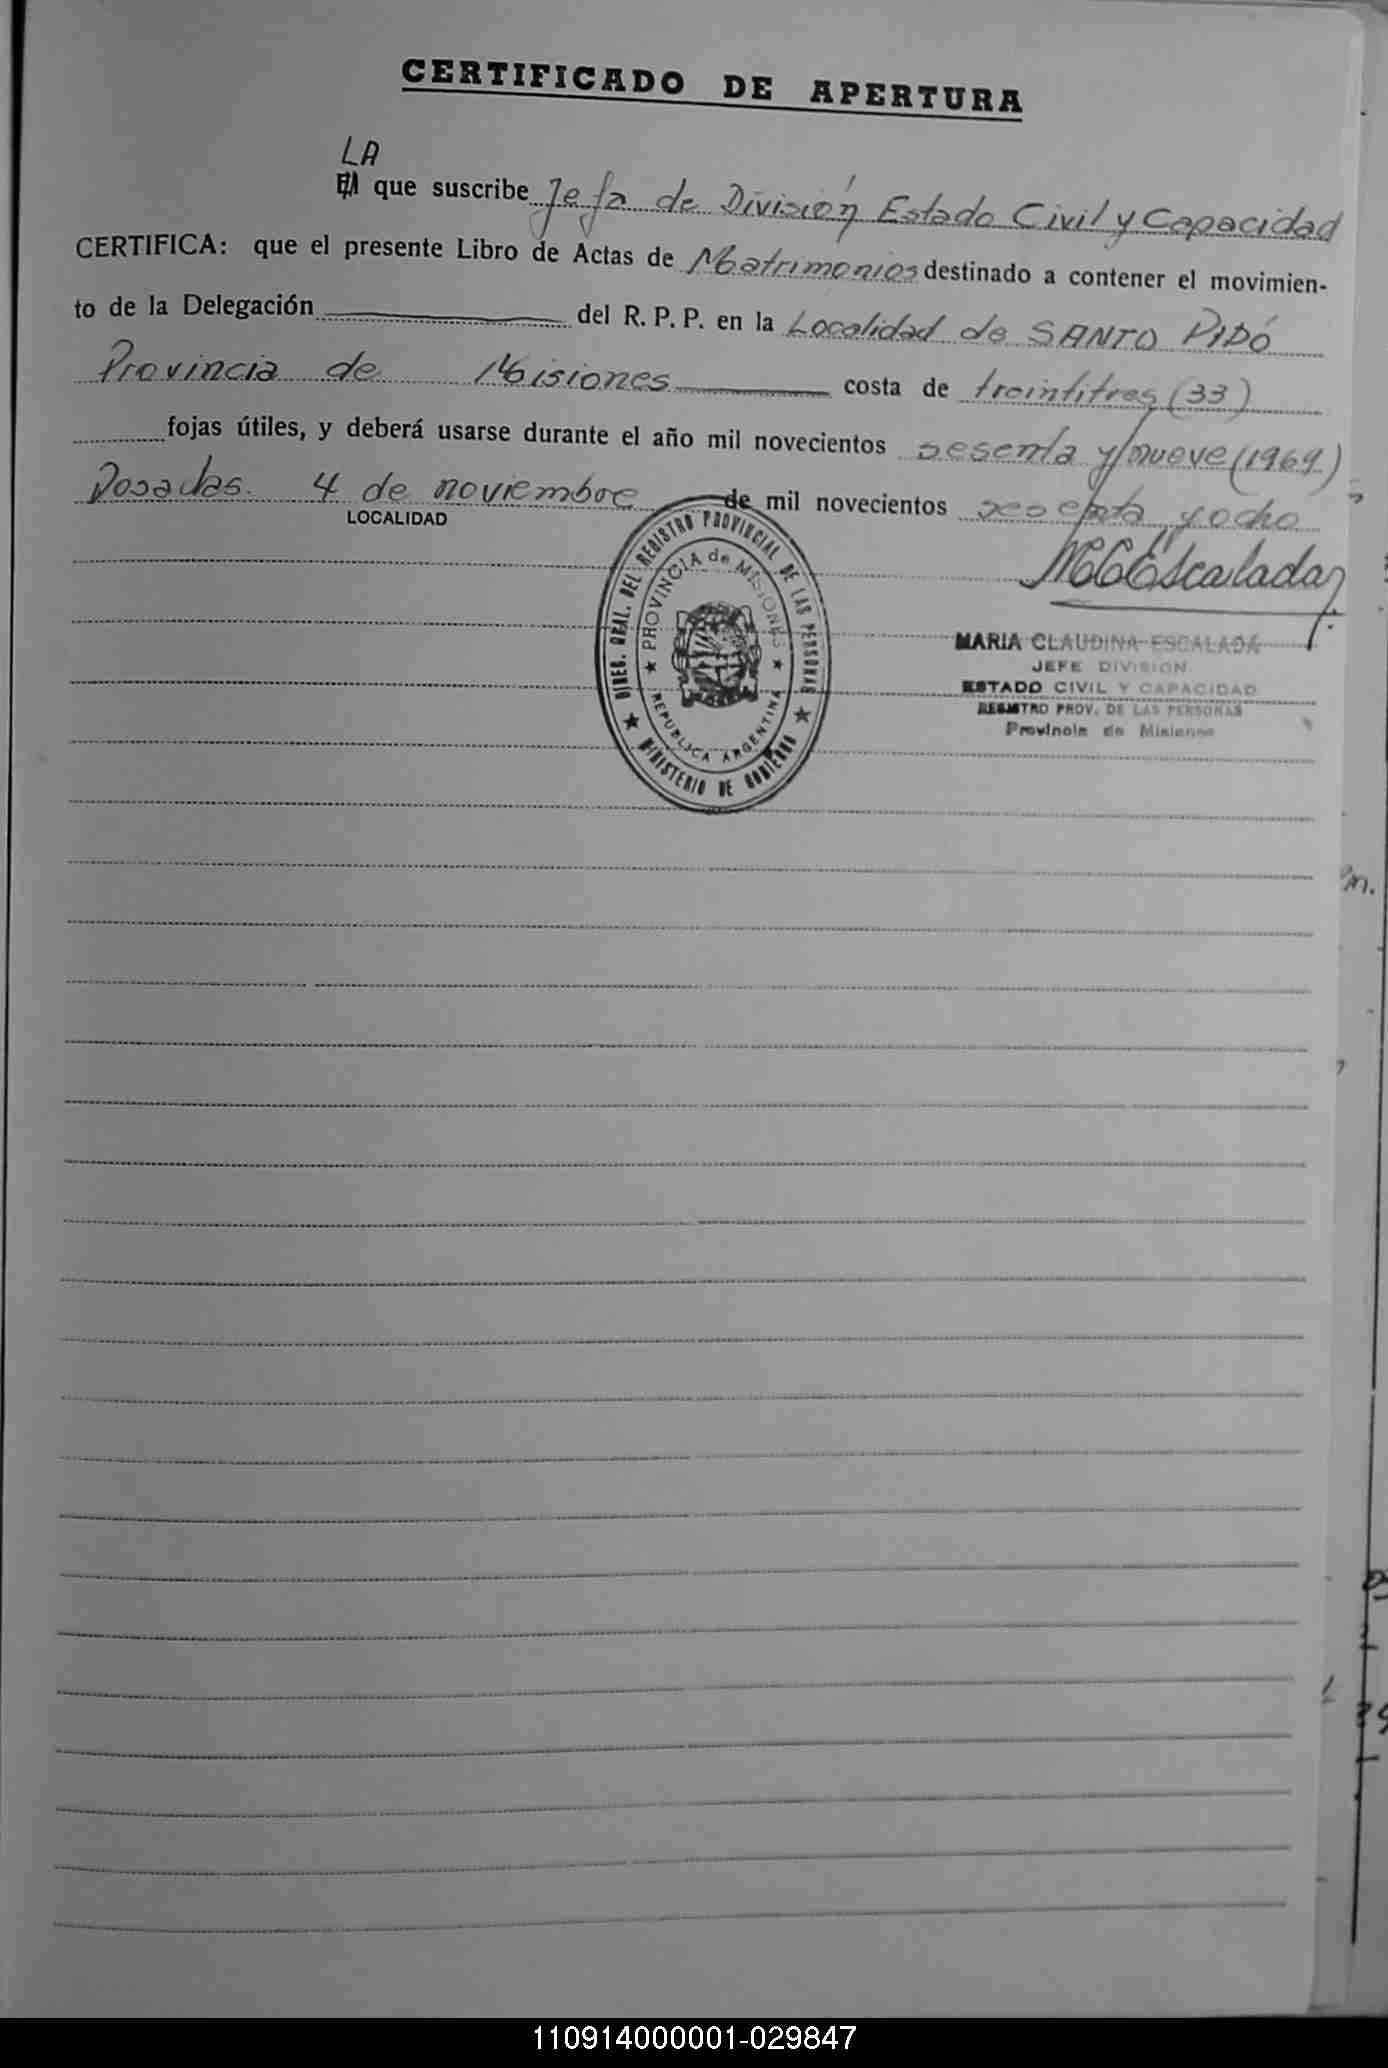 CERTIFICADO DE APERTURA
LA
El que suscribe Jefa de División Estado Civil y Capacidad
CERTIFICA: que el presente Libro de Actas de Matrimonios destinado a contener el movimien-
to de la Delegación del R. P. P. en la Localidad de SANTO PIPÓ
Provincia de Misiones costa de treintitres (33)
fojas útiles, y deberá usarse durante el año mil novecientos sesenta y nueve (1969)
Posadas. 4 de noviembre de mil novecientos sesenta y ocho
LOCALIDAD
MCEscalada
DIREC. GRAL. DEL REGISTRO PROVINCIAL DE LAS PERSONAS
PROVINCIA de MISIONES
REPUBLICA ARGENTINA
MINISTERIO DE GOBIERNO
MARIA CLAUDINA ESCALADA
JEFE DIVISION
ESTADO CIVIL Y CAPACIDAD
REGISTRO PROV. DE LAS PERSONAS
Provincia de Misiones
110914000001-029847